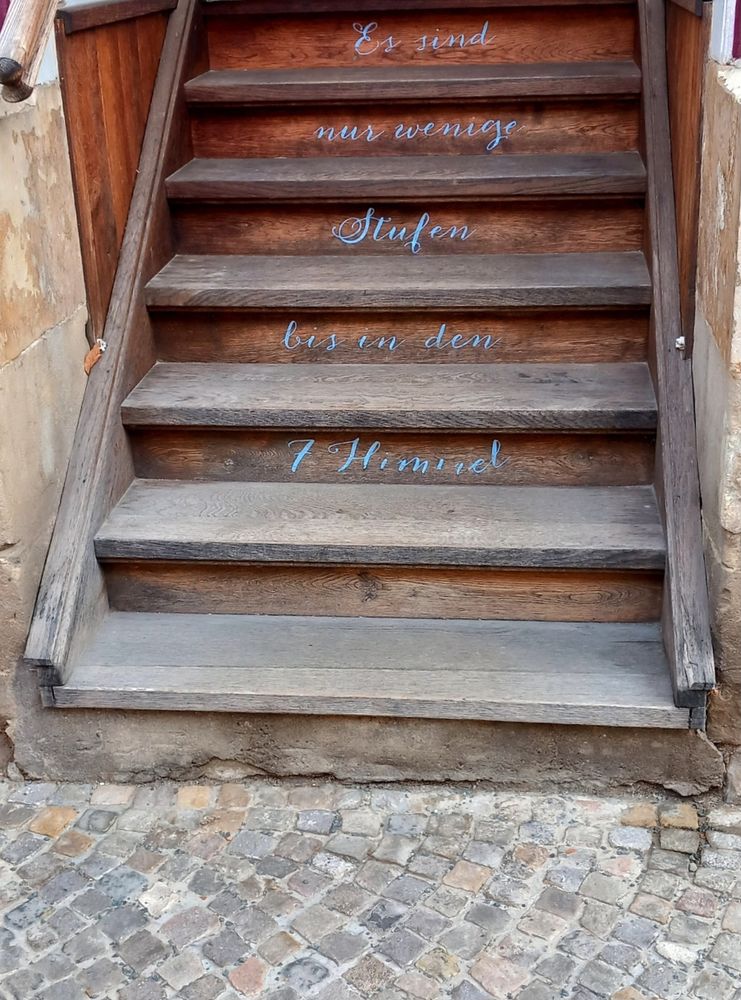 Es sind
nur wenige
Stufen
bis in den
7 Himmel